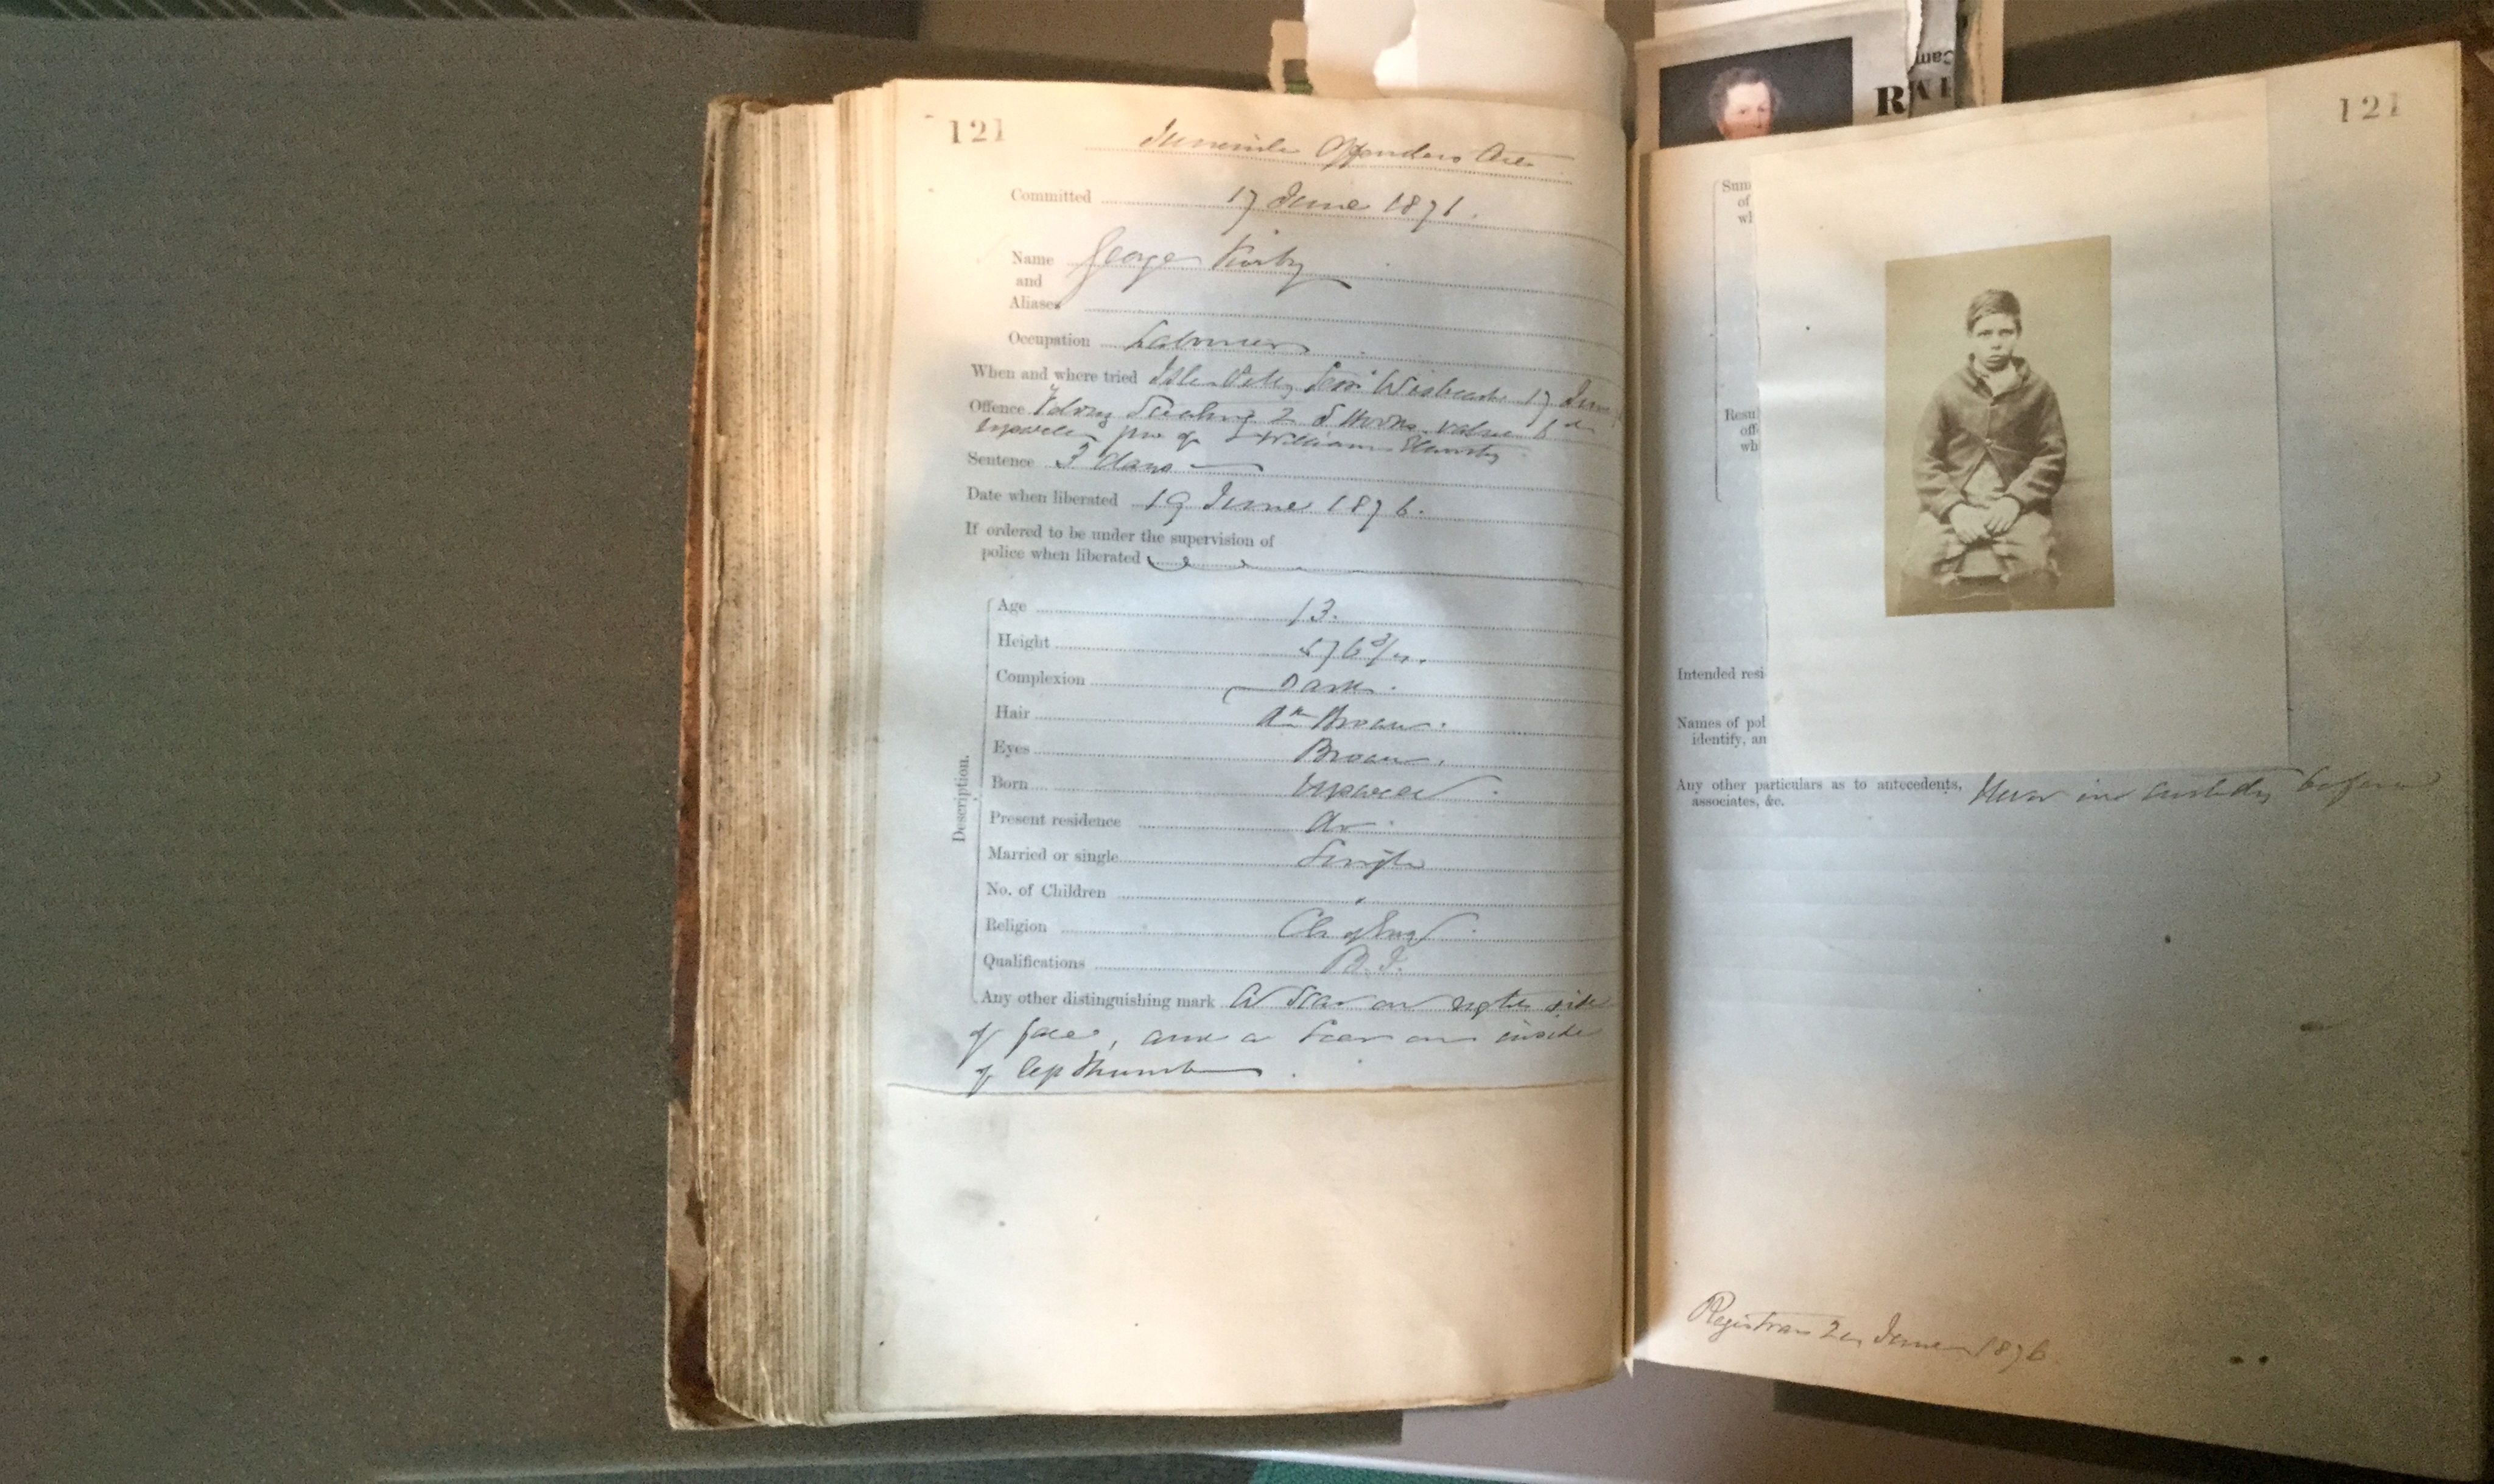 121
Juvenile Offenders Act
Committed 17 June 1876.
Name George Kirby
and
Aliases
Occupation Labourer
When and where tried Isle Petty Sess Wisbeach 17 June
Offence Felony Stealing 2 value 6d
Upwell pro of William
Sentence 3 days
Date when liberated 19 June 1876.
If ordered to be under the supervision of
police when liberated
Description.
Age 13.
Height 6 3/4.
Complexion Dark.
Hair Dk Brown.
Eyes Brown.
Born Upwell.
Present residence Do.
Married or single Single
No. of Children
Religion Ch of Eng.
Qualifications
Any other distinguishing mark A Scar on right side
of face, and a Scar on inside
of left Thumb.
Cam
121
Sum
of
wh
Resu
off
wh
Intended resi
Names of pol
identify, an
Any other particulars as to antecedents, Never in custody before
associates, &c.
June 1876.